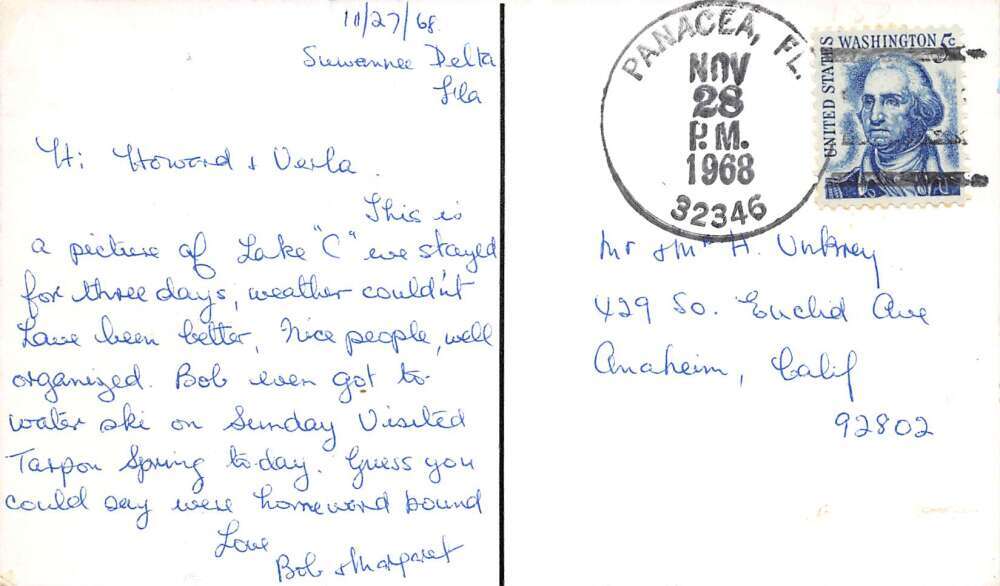 11/27/68
Suwannee Delta
Fla
Hi Howard & Verla.
This is
a picture of Lake "C" we stayed
for three days, weather couldn't
have been better, Nice people, well
organized. Bob even got to
water ski on Sunday Visited
Tarpon Spring to-day. Guess you
could say were homeword bound
Love
Bob & Margaret
PANACEA, FL.
NOV
28
P.M.
1968
32346
UNITED STATES
WASHINGTON 5c
Mr & Mrs H. Unkrey
429 So. Euclid Ave
Anaheim, Calif
92802